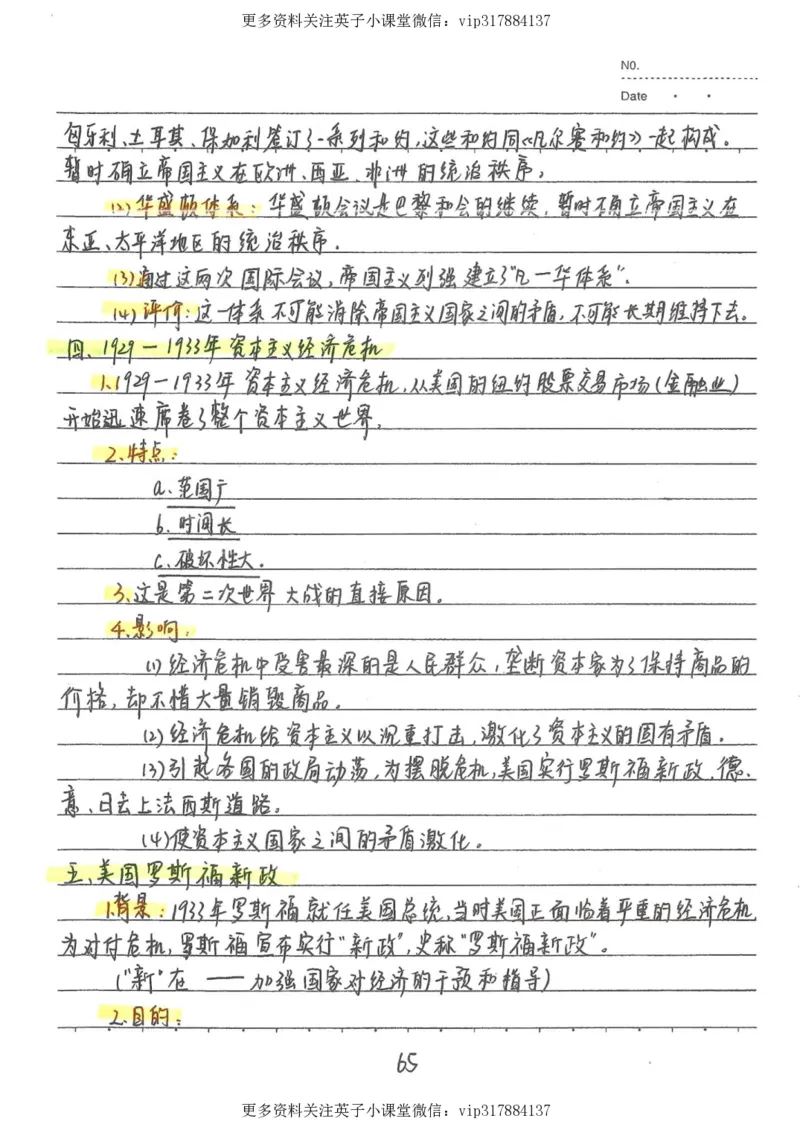 更多资料关注英子小课堂微信：vip317884137
NO.
Date
匈牙利、土耳其、保加利签订了一系列和约，这些和约同《凡尔赛和约》一起构成。
暂时确立帝国主义在欧洲、西亚、非洲的统治秩序。
(2)华盛顿体系：华盛顿会议是巴黎和会的继续，暂时确立帝国主义在
东亚、太平洋地区的统治秩序．
(3)通过这两次国际会议，帝国主义列强建立了“凡一华体系”．
(4)评价：这一体系不可能消除帝国主义国家之间的矛盾，不可能长期维持下去。
四、1929—1933年资本主义经济危机
1、1929－1933年资本主义经济危机，从美国的纽约股票交易市场（金融业）
开始迅速席卷了整个资本主义世界．
2、特点：
a、范围广
b、时间长
c、破坏性大．
3、这是第二次世界大战的直接原因．
4、影响：
(1)经济危机中受害最深的是人民群众，垄断资本家为了保持商品的
价格，却不惜大量销毁商品。
(2)经济危机给资本主义以沉重打击，激化了资本主义的固有矛盾．
(3)引起各国的政局动荡，为摆脱危机，美国实行罗斯福新政，德、
意、日去上法西斯道路。
(4)使资本主义国家之间的矛盾激化。
五、美国罗斯福新政
1、背景：1933年罗斯福就任美国总统，当时美国正面临着严重的经济危机，
为对付危机，罗斯福宣布实行“新政”，史称“罗斯福新政”。
（“新”在 —— 加强国家对经济的干预和指导）
2、目的：
65
更多资料关注英子小课堂微信：vip317884137